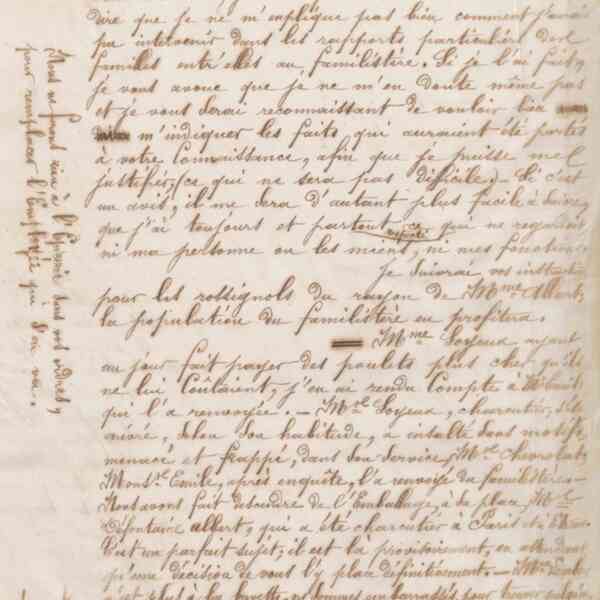 dire que je ne m'explique pas bien comment j'aurais
pu intervenir dans les rapports particuliers des
familles entr'elles au familistère. Si je l'ai fait,
je vous avoue que je ne m'en doute même pas
et je vous serai reconnaissant de vouloir bien
m'indiquer les faits qui auraient été portés
à votre Connaissance, afin que je puisse me
justifier, (ce qui ne sera pas difficile) – Si c'est
un avis, il me sera d'autant plus facile à suivre,
que j'ai toujours et partout ce qui ne regardait
ni ma personne ou les miens, ni mes fonctions
Je suivrai vos instructions
pour les rossignols du rayon de Mme Allart,
la population du familistère en profitera.
Mme Soyeux ayant
au jour fait payer des poulets plus cher qu'ils
ne lui Coûtaient, j'en ai rendu Compte à
qui l'a renvoyée. – Mr Soyeux, charcutier, s'est
enivré, selon son habitude, a insulté sans motifs
menacé et frappé, dans son service, Mr
Monsr Emile, après enquête, l'a renvoyé du familistère. –
Nous avons fait descendre de l'Emballage, à sa place, Mr
Défontaine albert, qui a été charcutier à Paris
C'est un parfait sujet; il est là provisoirement, en attendant
qu'une décision de vous l'y place définitivement. –
plus à la buvette, nous sommes embarrassés pour trouver
Nous ne ferons rien à l'Epicerie sans vos ordres,
pour remplacer l'Employée qui s'en va.